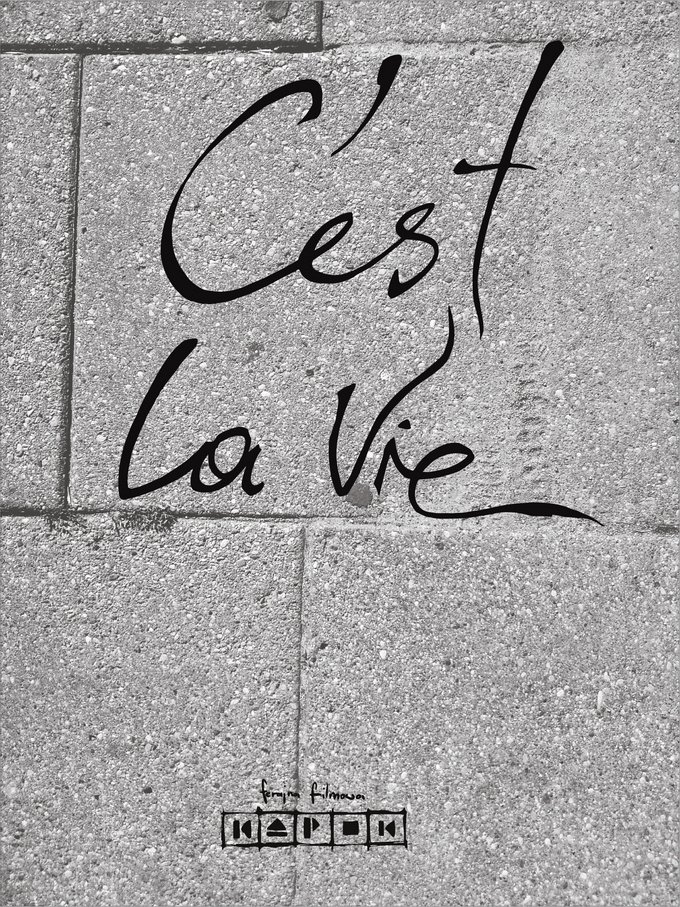 C'est
La Vie
ferajna filmowa
KAPOK